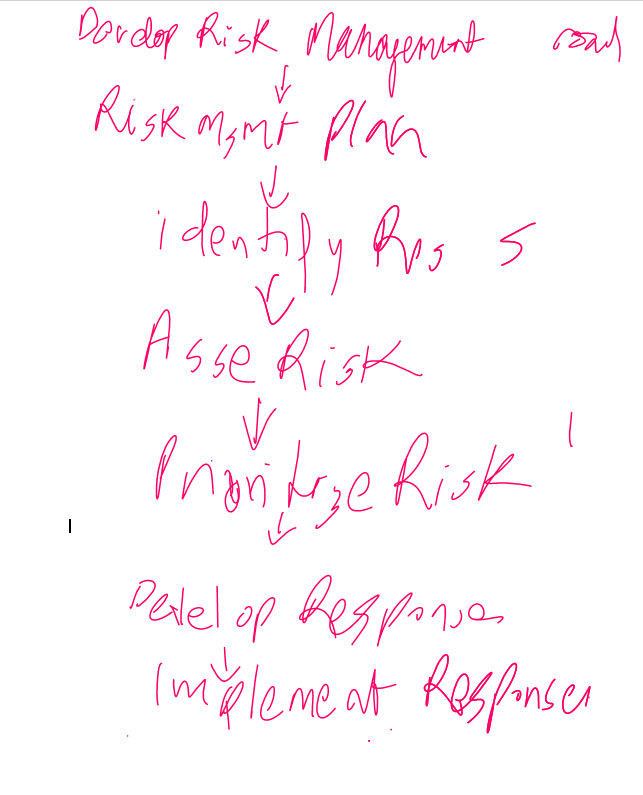 Develop Risk Management road
Risk mgmt Plan
identify Rps s
Asse Risk
Prioritize Risk
Develop Responses
Implement Responses